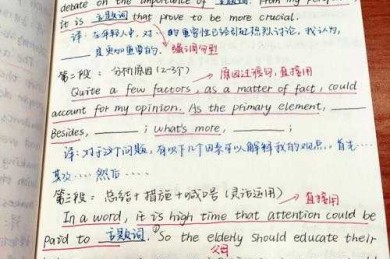 debate on the importance of 主题词. From my
it is 主题词 that prove to be more crucial.
译: 在年轻人中, 对 的重要性已经引起热烈讨论, 我认为,
是更加重要的. 编词分到
第二段: 分析原因(2-3个) 原因过度句, 直接用
Quite a few factors, as a matter of fact, could
account for my opinion. As the primary element, ____
Besides, ____; what's more, ____;
译: 对于这个问题, 有以下几个因素可以解释我的观点.. 首先...
其次.... 然后....
第三段: 总结+措施+喊口号(灵活运用) 直接用
In a word, it is high time that attention could be
paid to 主题词. ① So the elderly should educate their
父母